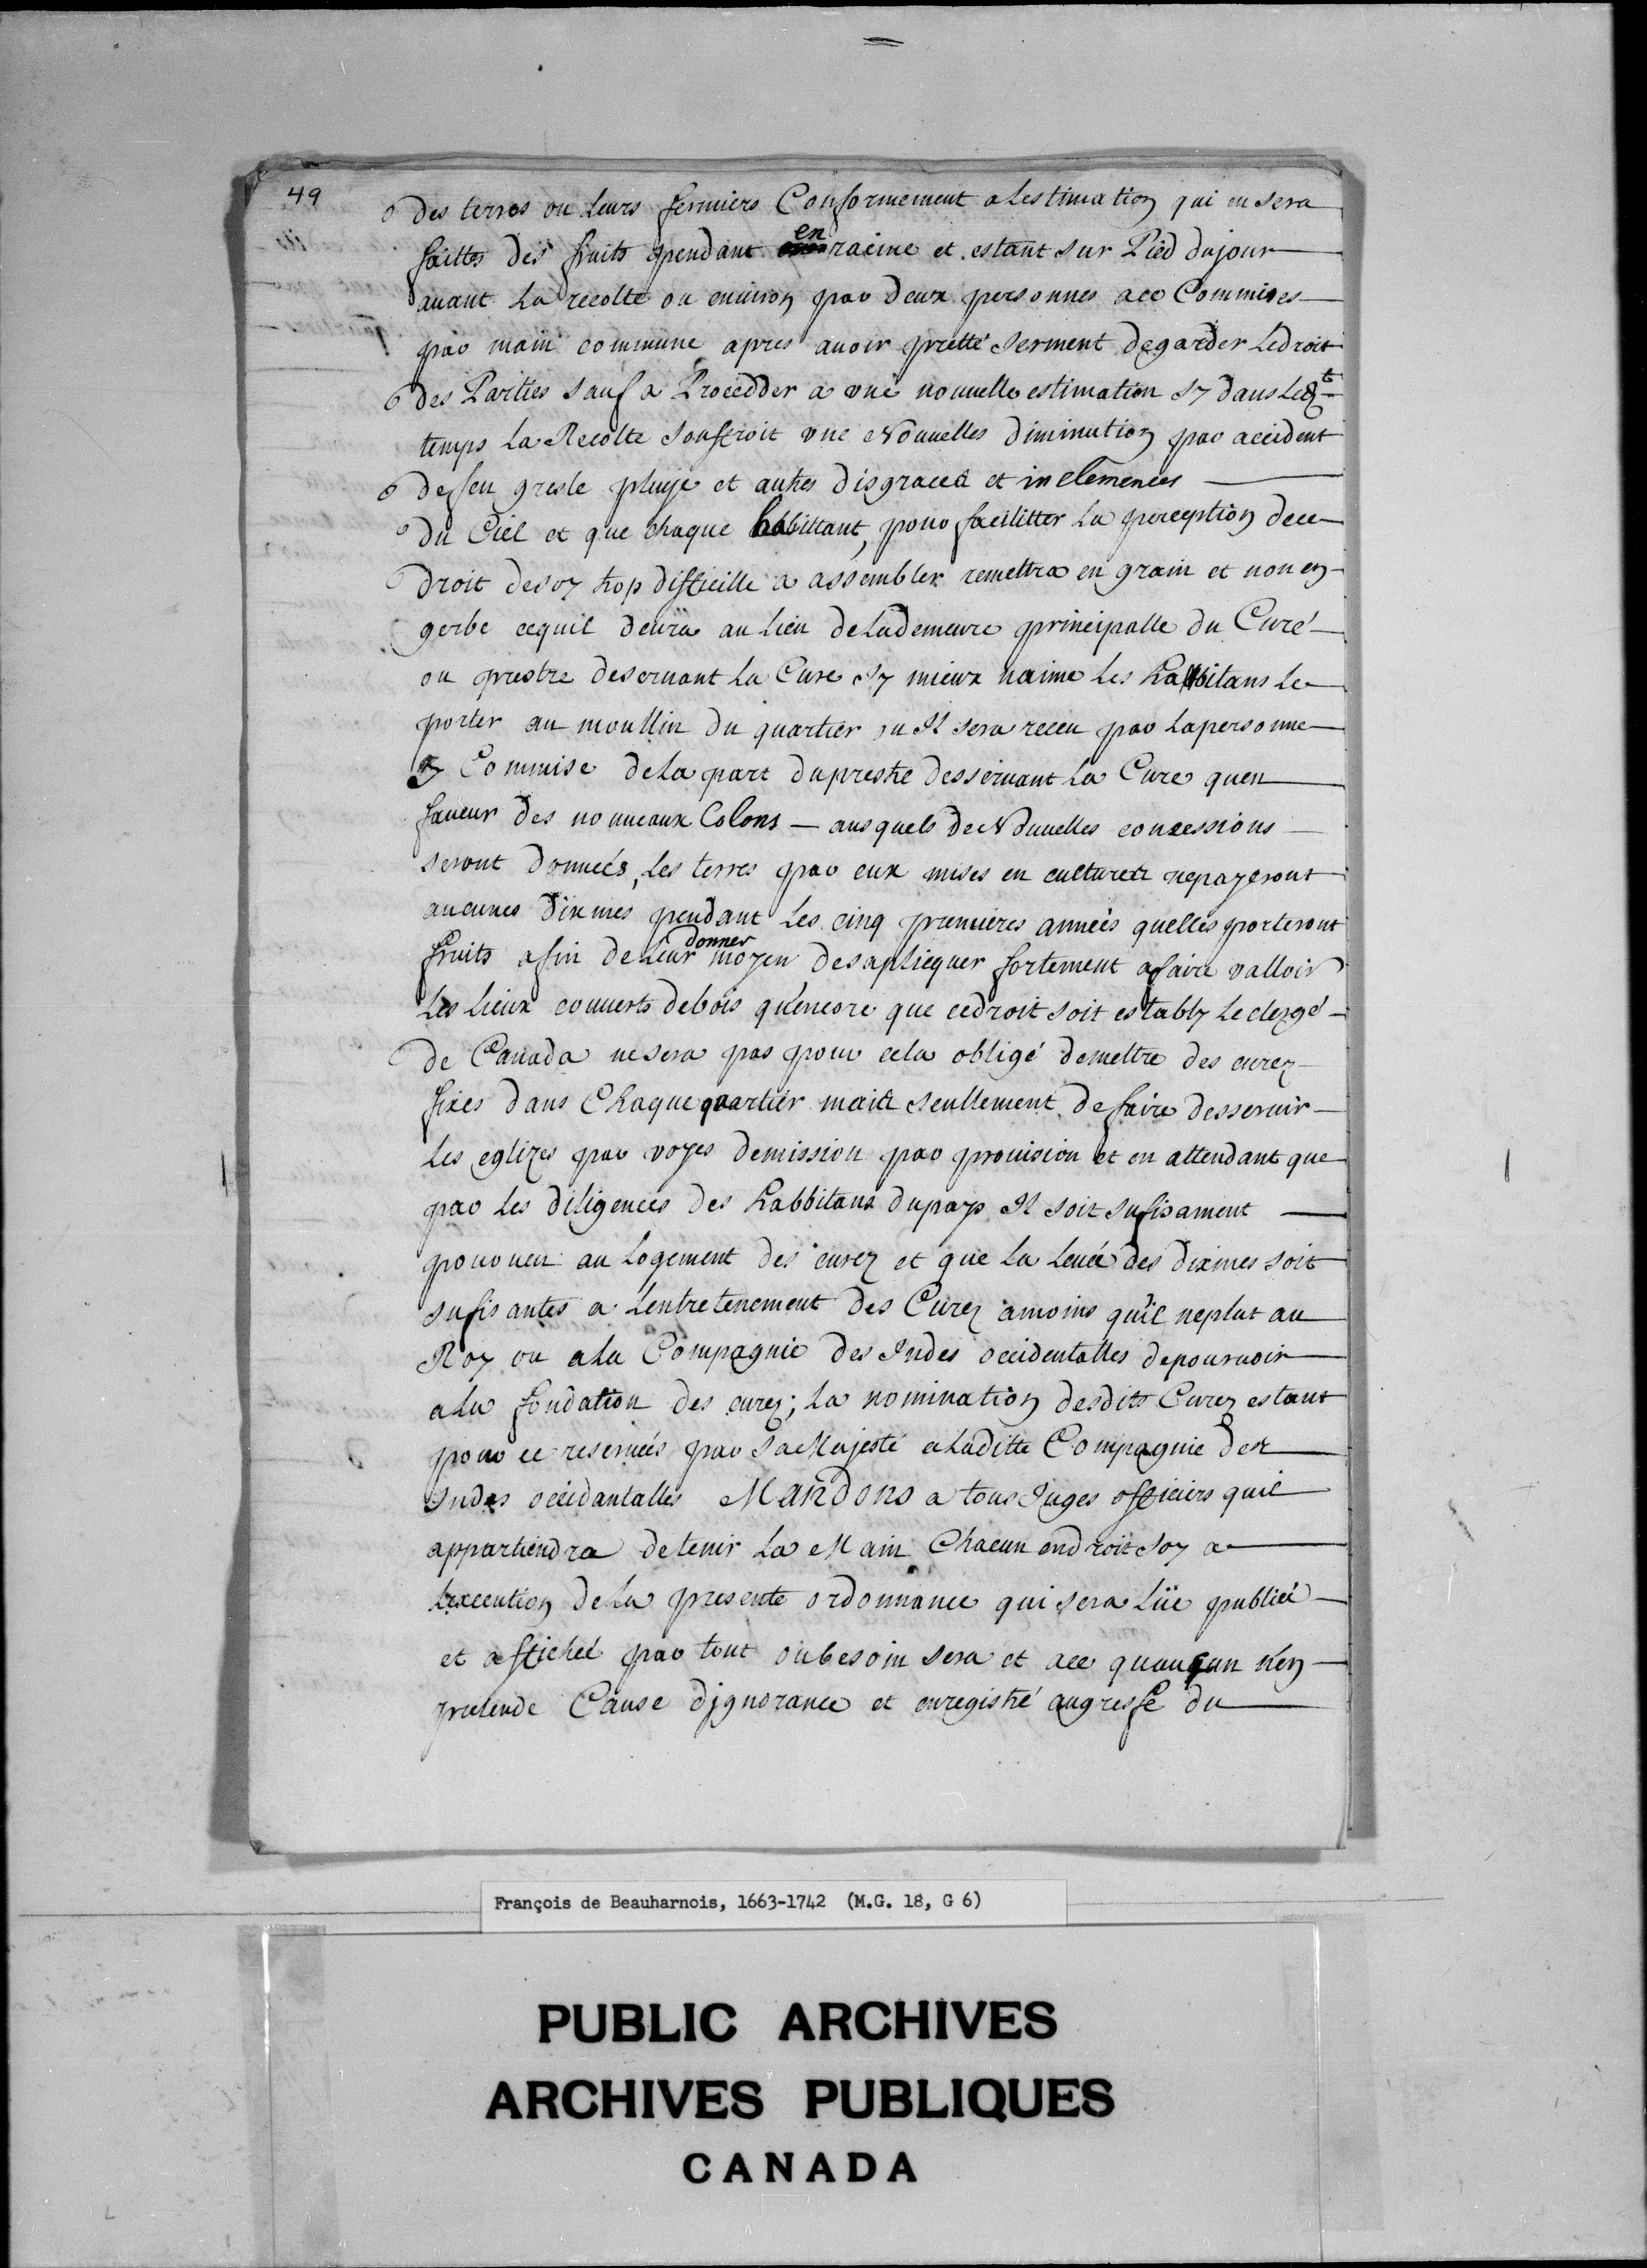 49
des terres ou leurs fermiers Conformement a Lestimation qui en sera
faittes des fruits pendant en racine et estant sur Pied dujour
avant La recolte ou environ par deux personnes ace Commises
par main commune apres avoir pretté serment degarder Ledroit
des Parties sauf a Procedder a une nouvelle estimation sy dans Led.t
temps La Recolte soufroit une Nouvelles diminution par accident
defeu gresle pluye et autres disgraces et inclemences
du Ciel et que chaque habbittant, pour facilitter La perception dece
droit desoy trop difficille a assembler remettra en grain et non en
gerbe cequil devra au Lieu deLademeure principalle du Curé
ou prestre deservant La Cure sy mieux naime Les habbitans Le
porter au moullin du quartier ou Il sera receu par Lapersonne
Commise deLa part duprestre desservant La Cure quen
faveur des nouveaux Colons - ausquels de Nouvelles concessions
seront donneés, Les terres par eux mises en cultures nepayeront
aucunes dixmes pendant Les cinq premieres anneés quelles porteront
donner
fruits afin de Leur moyen desaplicquer fortement afaire valloir
Les Lieux couverts debois quencore que cedroit soit establÿ Leclergé
de Canada nesera pas pour cela obligé demettre des curez
fixes dans Chaque quartier mais seullement defaire desservir
Les eglizes par voyes demission par provision et en attendant que
par Les diligences des habbitans dupays Il soit sufisament
pourveu au Logement des curez et que La Levée des dixmes soit
sufisantes a Lentretenement des Curez amoins qu'il neplut au
Roy ou aLa Compagnie des Indes occidentalles depourvoir
aLa fondation des curez; La nomination desdits Curez estant
pour ce reserveés par SaMajesté aLaditte Compagnie des
Indes occidantalles Mandons a tous Juges officiers quil
appartiendra detenir La Main Chacun endroit soy a
Lexecution deLa presente ordonnance qui sera Lüe publieé
et afficheé par tout oubesoin sera et ace quaucun nen
pretende Cause dignorance et enregistré augreffe du
François de Beauharnois, 1663-1742 (M.G. 18, G 6)
PUBLIC ARCHIVES
ARCHIVES PUBLIQUES
CANADA